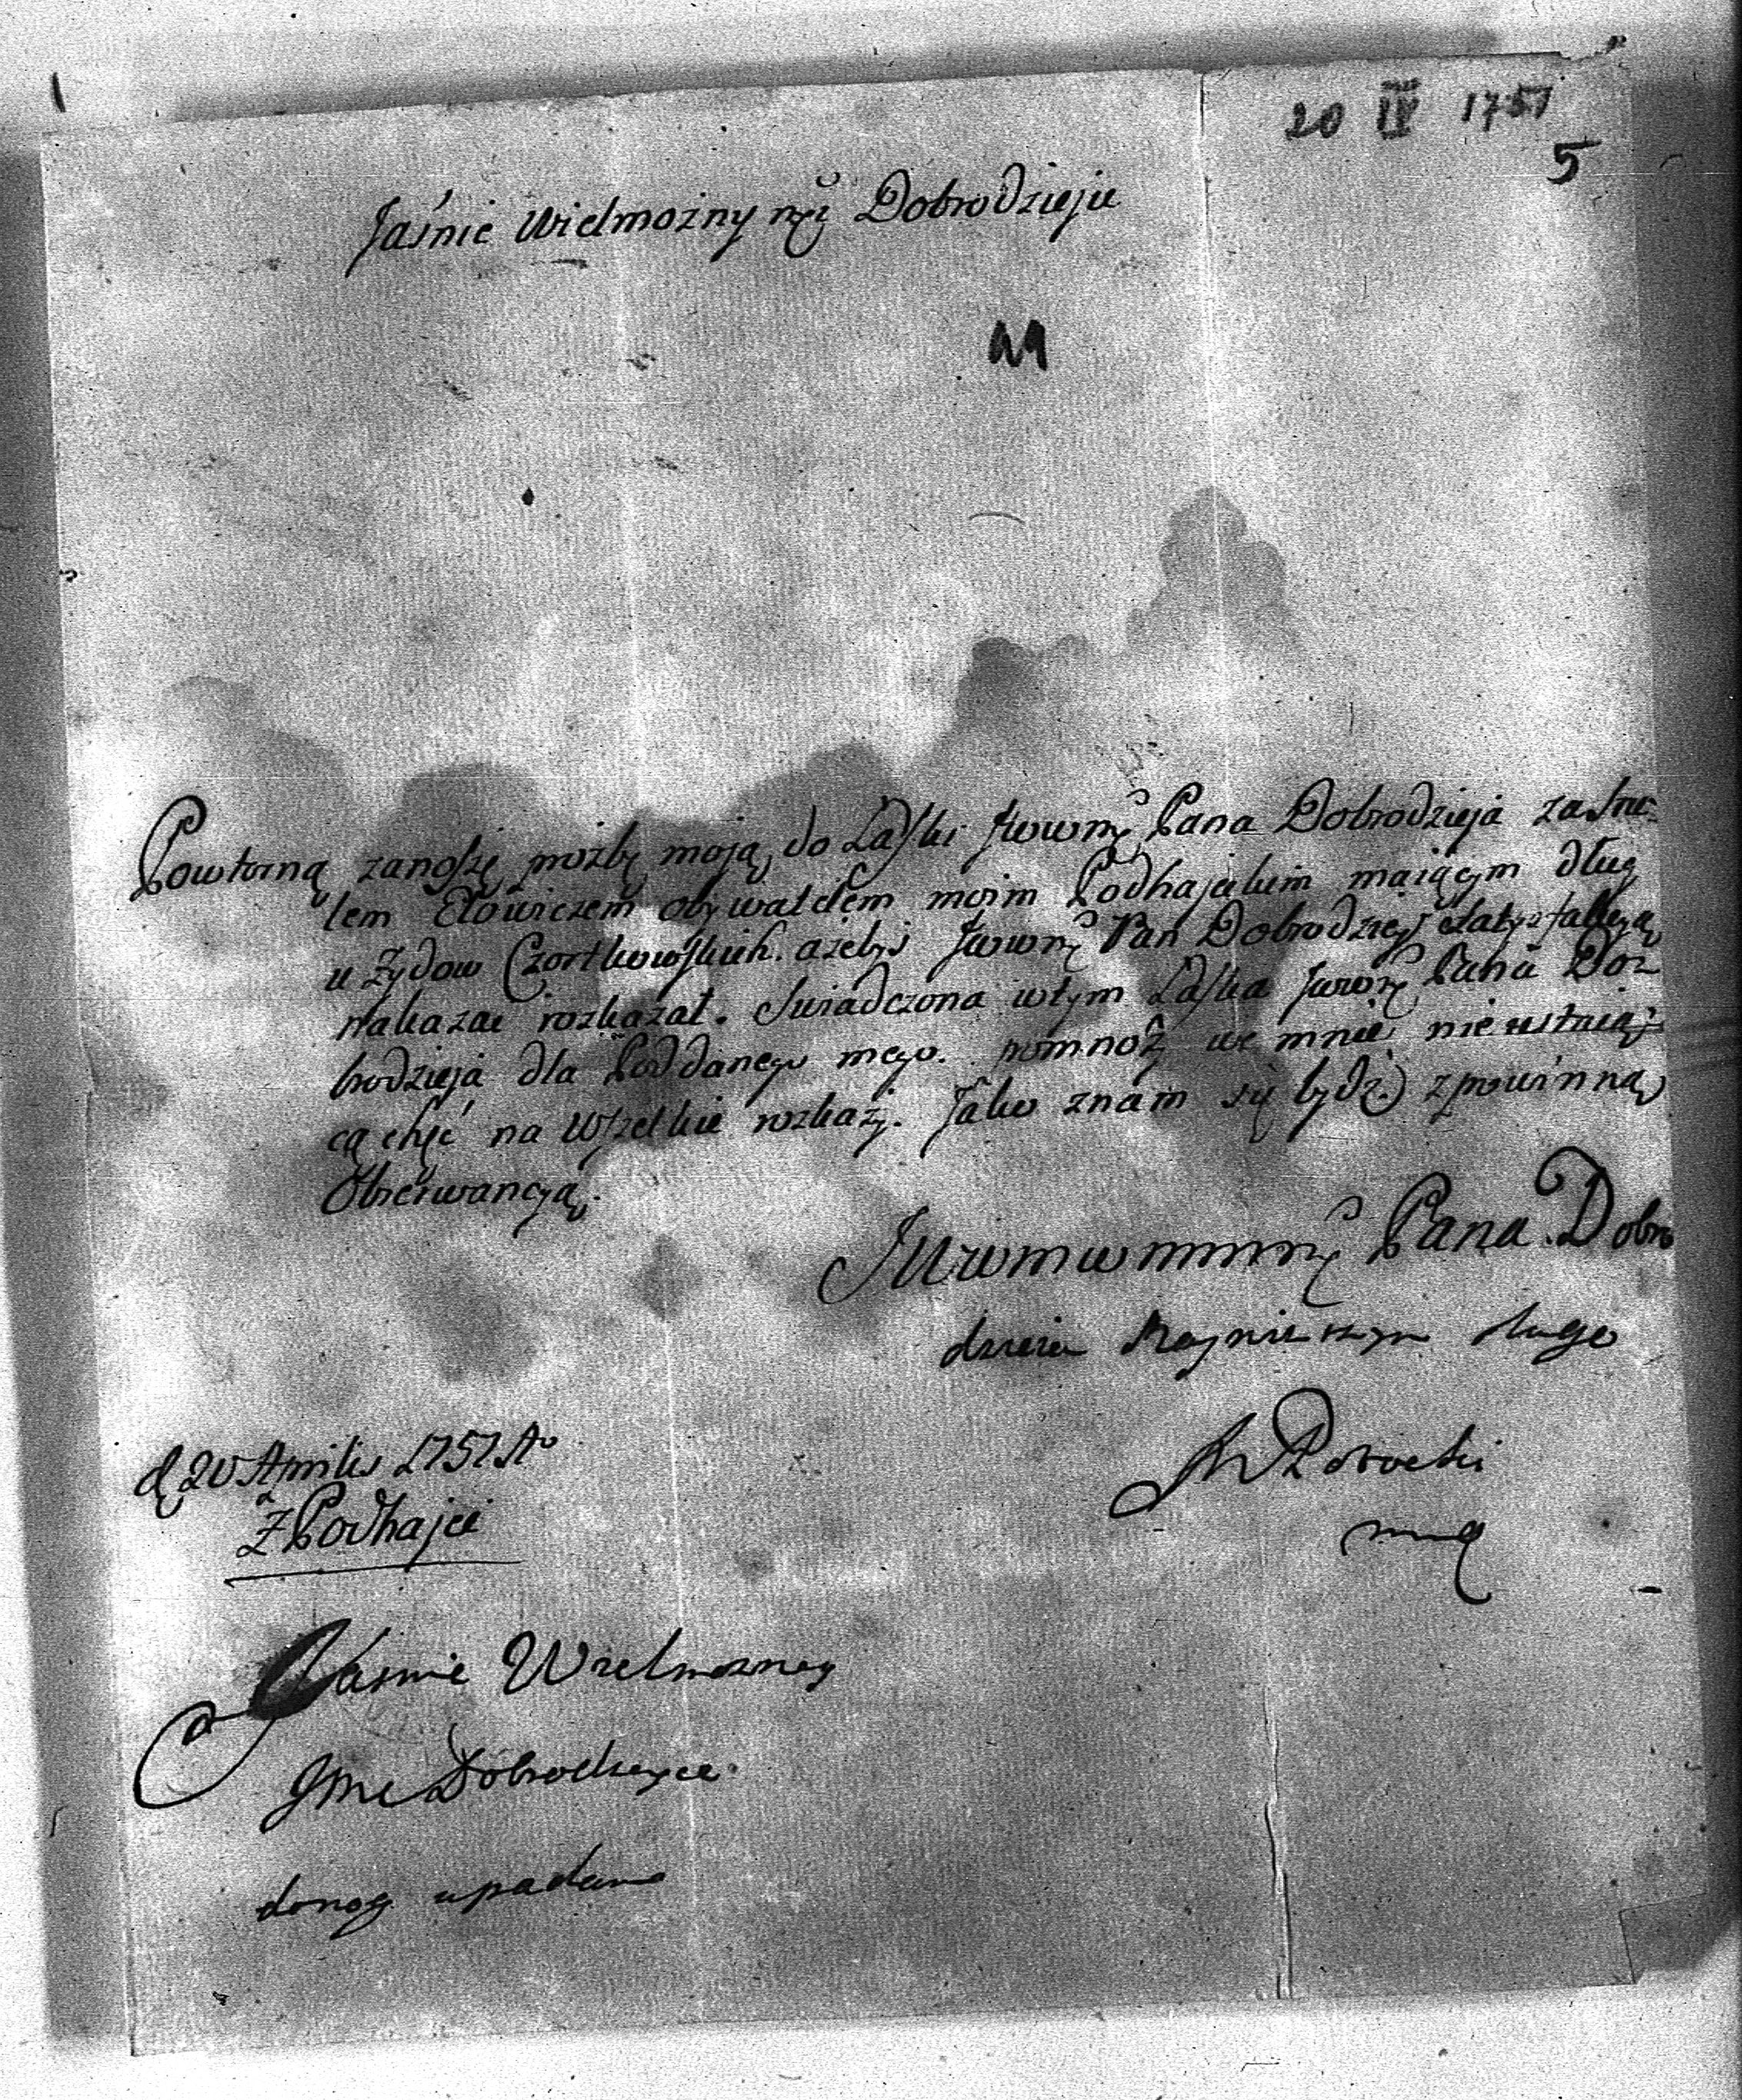 20 IV 1757
5
Jaśnie Wielmożny Dobrodzieju
Powtorną zanoszę prozbę moją, do Łaski Pana Dobrodzieja za
lem obywatelem moim Podhajeckim maiącym dług
u Żydow Czortkowskich. ażebyś Pan Dobrodziey
nakazać rozkazał. Swiadczona wtym Łaska Pana Do=
brodzieja dla Poddanego mego. pomnoży we mnie nieustaią=
cą chęć na wszelkie rozkazy. Jako znam się bydź zpowinną
Obserwancyą.
Pana Dobro
dzieia Nayniższym sługą
Potocki
mp
d 20 Aprilis 1757 Ao
z Podhajec
Jaśnie Wielmozney
Jmc Dobrodzeyce
donog upadam